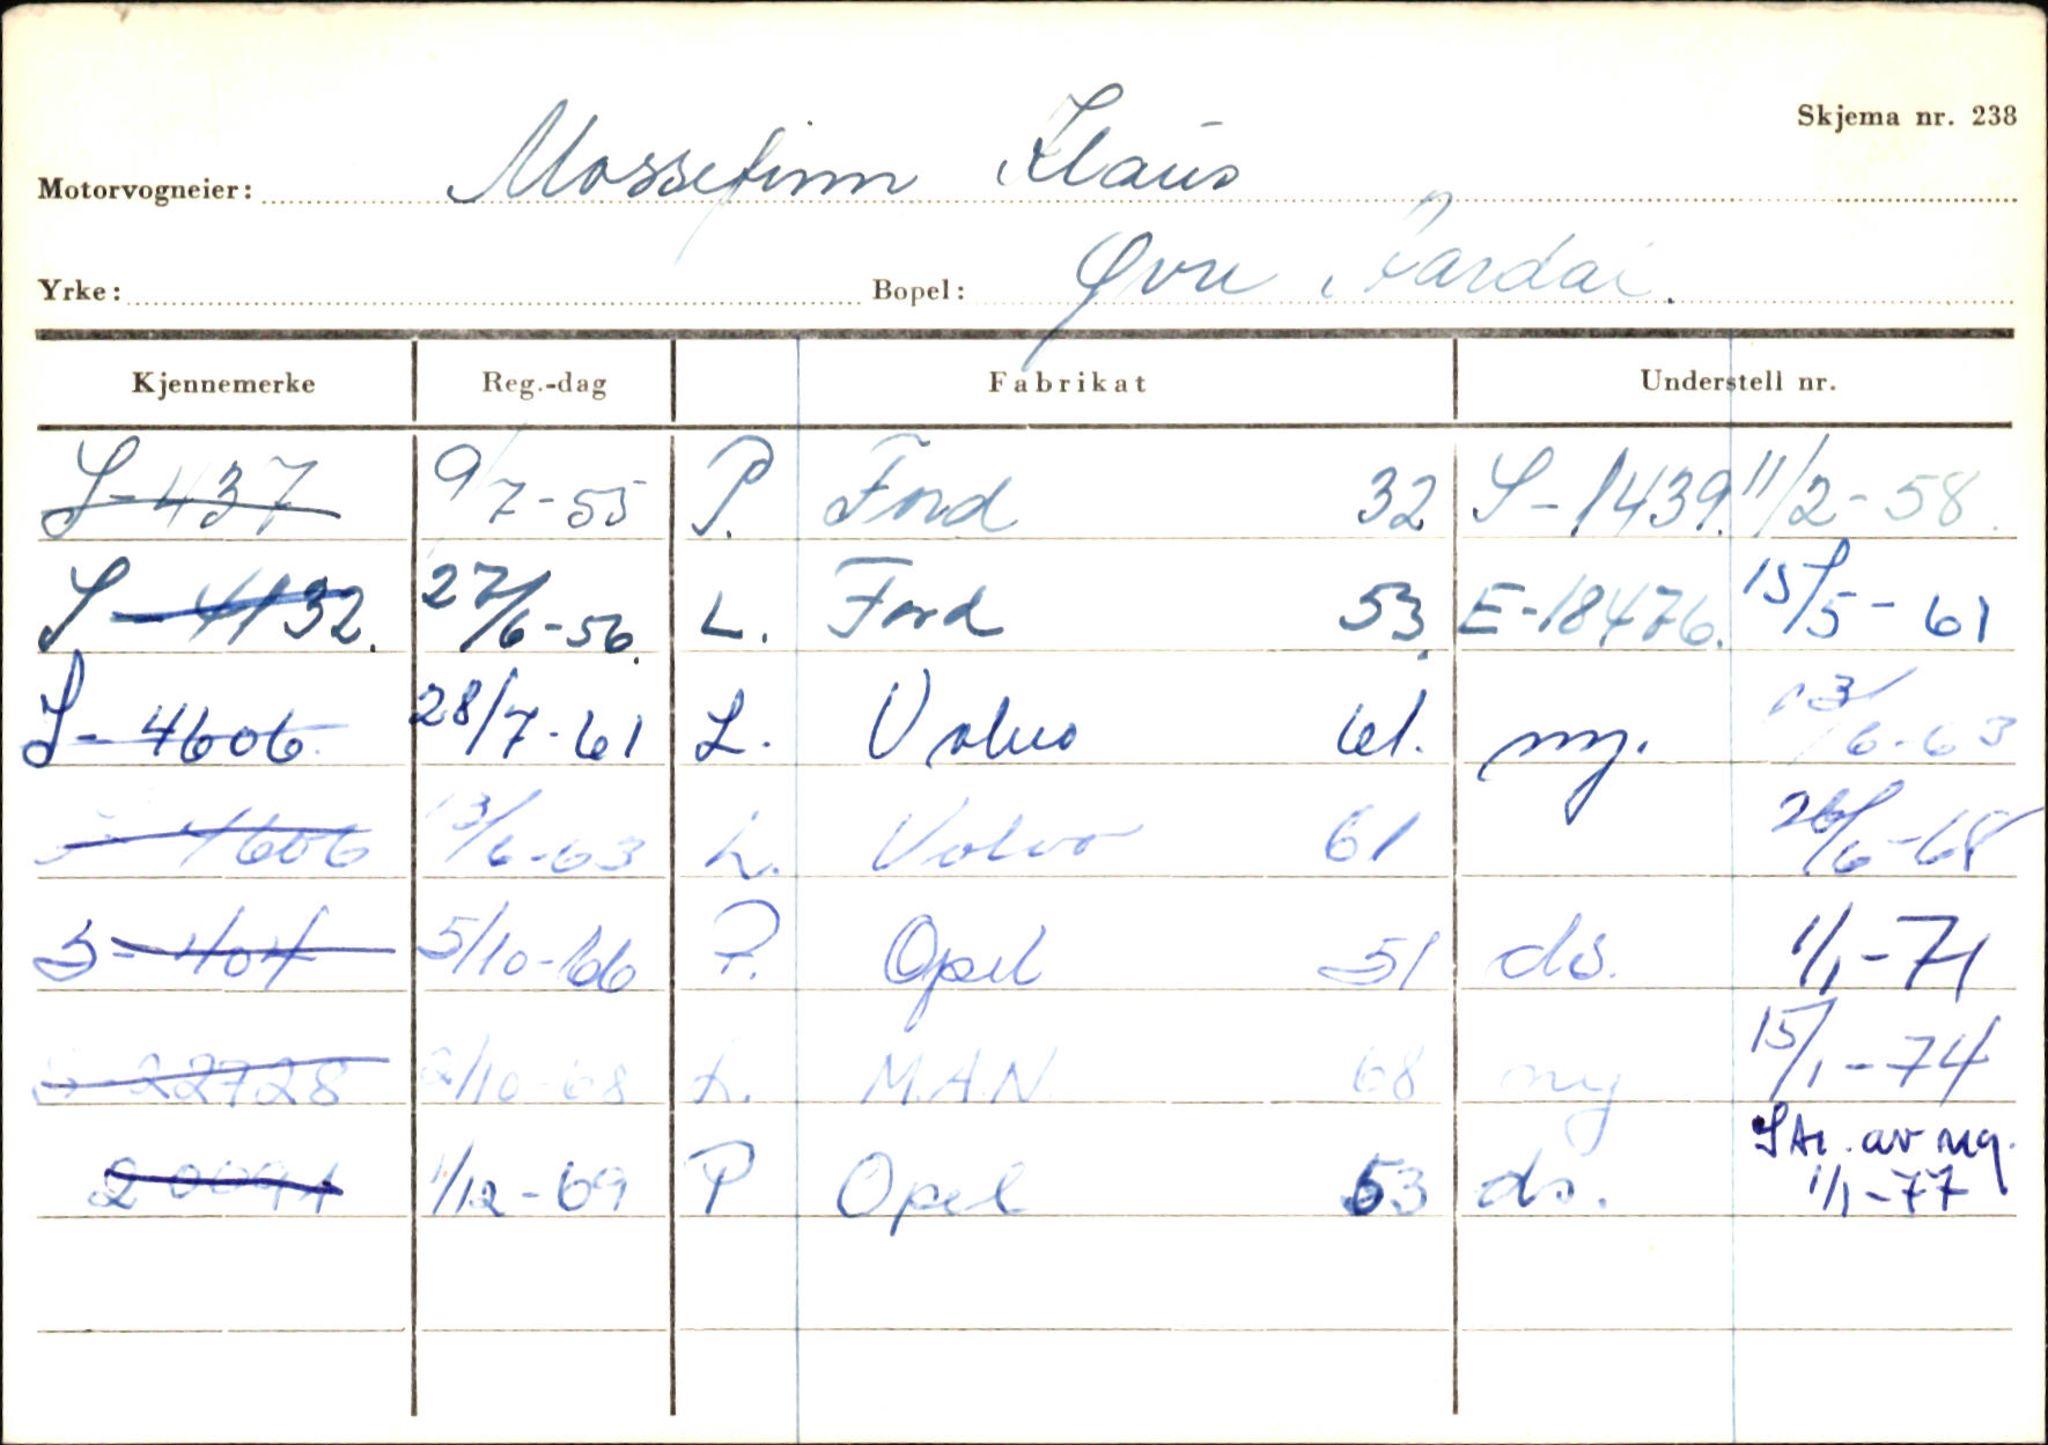 Skjema nr. 238
Motorvogneier: Mossefinn Klaus
Yrke: Bopel: Øvre Årdal.
Kjennemerke Reg.-dag Fabrikat Understell nr.
S-437 9/7-55 P. Ford 32 S-1439. 11/2-58.
S-4132. 27/6-56. L. Ford 53. E-18476. 15/5-61
S-4606 28/7-61 L. Volvo 61. ny. 13/6-63
S-4606 13/6-63 L. Volvo 61 26/6-68
S-404 5/10-66 P. Opel 51 ds. 1/1-71
S-22728 2/10-68 L. M.A.N. 68 ny 15/1-74
1/12-69 P Opel 53 ds. Str. av reg. 1/1-77